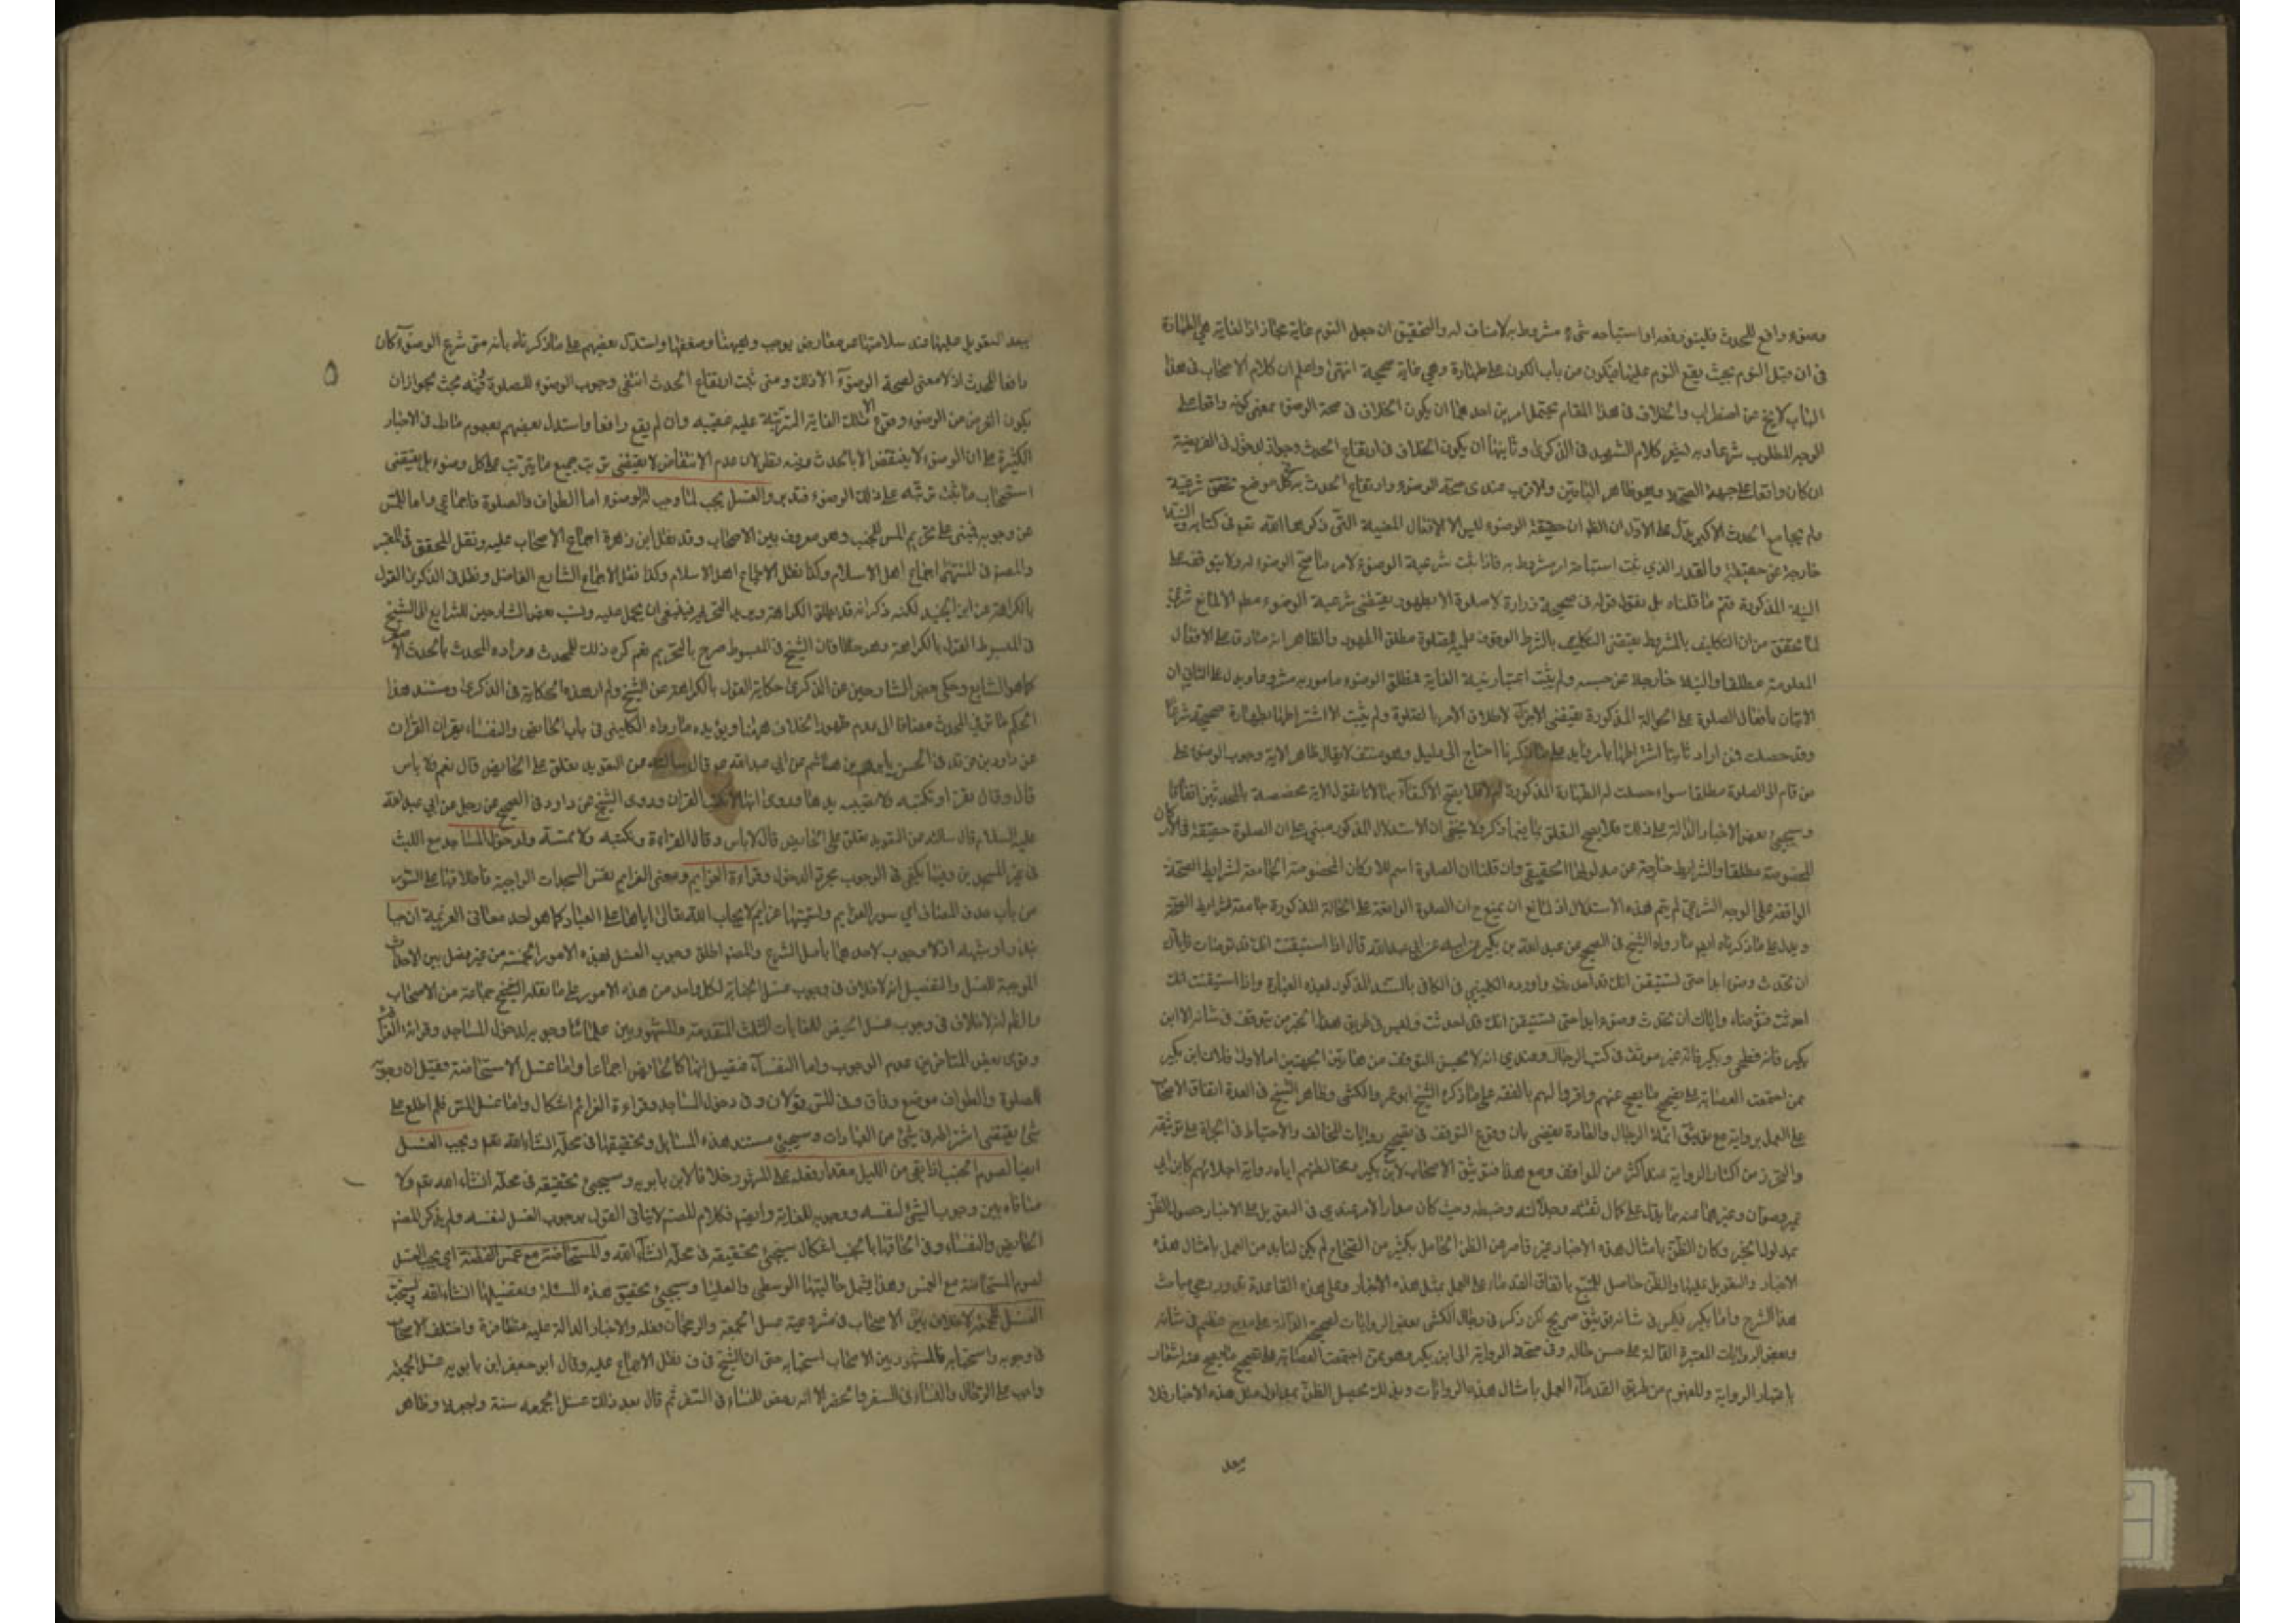 وضوء رافع للحدث فلينو رفعه او استباحه شيء مشروط به لامناف له والتحقيق ان جعل النوم غاية مجاز اذ الغاية هي الطهارة
في ان قبل النوم بحيث يقع النوم عليها فيكون من باب الكون على طهارة وهي غاية صحيحة انتهى واعلم ان كلام الاصحاب في هذا
الباب لا يخ عن اضطراب والخلاف في هذا المقام يحتمل امرين احدهما ان يكون الخلاف في صحة الوضوء بمعنى كونه واقعا على
الوجه المطلوب شرعا وبه يشعر كلام الشهيد في الذكرى وثانيهما ان يكون الخلاف في ارتفاع الحدث وجواز الدخول في الفريضة
ان كان واقعا على جهة الصحة وهو ظاهر الباقين والاقرب عندي صحة الوضوء وارتفاع الحدث به في كل موضع تحقق شرعية
ولم يجامع الحدث الاكبر يدل على الاول ان الظ ان حقيقة الوضوء ليس الا الافعال المعينة التي ذكرها الله تعم في كتابه والنية
خارجة عن حقيقته والقدر الذي ثبت استباحة امر مشروط به فاذا ثبت شرعية الوضوء لامر ما صح الوضوء له ولا يتوقف على
النية المذكورة فتم ما قلناه بل نقول قوله في صحيحة زرارة لا صلوة الا بطهور يقتضي شرعية الوضوء مطم الا لمانع شرعي
لما تحقق من ان التكليف بالمشروط يقتضي التكليف بالشرط الموقوف عليه للصلوة مطلق الطهور والظاهر انه صادق على الافعال
المعلومة مطلقا والنية خارجة عن حبسه ولم يثبت اعتبار نية الغاية فمطلق الوضوء مامور به مشروعا ويدل على الثاني ان
الاتيان بافعال الصلوة على الحالة المذكورة يقتضي الاجزاء لاطلاق الامر بالصلوة ولم يثبت الا اشتراطها بطهارة صحيحة شرعا
وقد حصلت فمن اراد ثابتا اشتراطها بامر زايد على ما ذكرنا احتاج الى دليل وهو منتف لا يقال ظاهر الاية وجوب الوضوء على
من قام الى الصلوة مطلقا سواء حصلت له الطهارة المذكورة ام لا فلا يصح الاكتفاء بها لانا نقول الاية مخصصة بالمحدثين اتفاقا
وسيجيئ بعض الاخبار الدالة على ذلك فلا يصح التعلق بها فيما ذكر ولا يخفى ان الاستدلال المذكور مبني على ان الصلوة حقيقة في الاركان
المخصوصة مطلقا والشرايط خارجة عن مدلولها الحقيقي وان قلنا ان الصلوة اسم للاركان المخصوصة الجامعة لشرايط الصحة
الواقعة على الوجه الشرعي لم يتم هذه الاستدلال اذ لمانع ان يمنع ح ان الصلوة الواقعة على الحالة المذكورة جامعة لشرايط الصحة
ويدل على ما ذكرناه ايضم ما رواه الشيخ في الصحيح عن عبد الله بن بكير عن ابيه عن ابي عبدالله قال اذا استيقنت انك قد توضات فاياك
ان تحدث وضوء ابدا حتى تستيقن انك قد احدثت واورده الكليني في الكافي بالسند المذكور لهذه العبارة واذا استيقنت انك
احدثت فتوضأ واياك ان تحدث وضوء ابدا حتى تستيقن انك قد احدثت وليس في طريق هذا الخبر من يتوقف في شانه الا ابن
بكير فانه فطحي وبكير فانه غير موثق في كتب الرجال وعندي انه لا يحسن التوقف من هاتين الجهتين اما الاول فلان ابن بكير
ممن اجتمعت العصابة على تصحيح ما يصح عنهم واقروا لهم بالفقه على ما ذكره الشيخ ابو عمر والكشي وظاهر الشيخ في العدة اتفاق الاصحاب
على العمل بروايته مع توثيق ائمة الرجال والعادة يقضي بان وقوع التوقف في تصحيح روايات المخالف والاحتياط في الجراة على توثيقه
والتحرز من اكثار الرواية عنه اكثر من الموافق ومع هذا فتوثيق الاصحاب لابن بكير ومخالطتهم اياه ورواية اجلائهم كابن ابي
عمير وصفوان وغيرهما عنه مما يدل على كمال ثقته وجلالته وضبطه وحيث كان مدار الامر عندي في التعويل على الاخبار حصول الظن
بمدلول الخبر وكان الظن بامثال هذه الاخبار غير قاصر عن الظن الحاصل بكثير من الصحاح لم يكن لنا بد من العمل بامثال هذه
الاخبار والتعويل عليها والظن حاصل للمتتبع باتفاق القدماء على العمل بمثل هذه الاخبار وعلى هذه القاعدة تدور رحى مباحث
هذا الشرح واما بكير فليس في شانه توثيق صريح لكن ذكر في رجال الكشي بعض الروايات الصحيحة الدالة على مدح عظيم في شانه
وبعض الروايات المعتبرة الدالة على حسن حاله وفي صحة الرواية الى ابن بكير وهو ممن اجتمعت العصابة على تصحيح ما يصح عنه اشعار
باعتبار الرواية والمفهوم من طريق القدماء العمل بامثال هذه الروايات وبذلك تحصيل الظن بمدلول مثل هذه الاخبار فلا
بعد
بعد التعويل عليها عند سلامتها عن معارض يوجب وهنها وضعفها واستدل بعضهم على ما ذكرناه بانه متى شرع الوضوء كان
٥
رافعا للحدث اذ لا معنى لصحة الوضوء الا ذلك ومتى ثبت ارتفاع الحدث انتفى وجوب الوضوء للصلوة وفيه بحث لجواز ان
يكون الغرض من الوضوء وقوع تلك الغاية المترتبة عليه عقيبه وان لم يقع رافعا واستدل بعضهم بعموم ما دل في الاخبار
الكثيرة على ان الوضوء لا ينقض الا بالحدث وفيه نظر لان عدم الانتقاض لا يقتضي ترتب جميع ما يترتب على كل وضوء بل يقتضي
استصحاب ما ثبت ترتبه على ذلك الوضوء فتدبر والغسل يجب لما وجب له الوضوء اما الطواف والصلوة فاجماعي واما المس
عن وجوبه فمبنى على تحريم المس للجنب وهو معروف بين الاصحاب وقد نقل ابن زهرة اجماع الاصحاب عليه ونقل المحقق في المعتبر
والمصنف في المنتهى اجماع اهل الاسلام وكذا نقل الاجماع اهل الاسلام وكذا نقل الاجماع الشارع الفاضل ونقل في الذكرى القول
بالكراهة عن ابن الجنيد لكنه ذكر انه قد يطلق الكراهة ويريد التحريم فينبغي ان يحمل عليه ونسب بعض الشارحين للشرايع الى الشيخ
في المبسوط القول بالكراهة وهو خطا فان الشيخ في المبسوط صرح بالتحريم نعم كره ذلك للمحدث ومراده المحدث بالحدث الاصغر
كما هو الشايع وحكى بعض الشارحين عن الذكرى حكاية القول بالكراهة عن الشيخ ولم ار هذه الحكاية في الذكرى ومستند هذا
الحكم ما مر في المحدث مضافا الى عدم ظهور الخلاف ههنا ويؤيده ما رواه الكليني في باب الحائض والنفساء يقران القران
عن داود بن فرقد في الحسن بابراهيم بن هاشم عن ابي عبدالله ع قال سالته عن التعويذ يعلق على الحائض قال نعم لا باس
قال وقال تقراه وتكتبه ولا تصيبه يدها وروى انها لا تكتب القران وروى الشيخ عن داود في الصحيح عن رجل عن ابي عبدالله
عليه السلام قال سالته عن التعويذ يعلق على الحائض قال لا باس وقال تقراه وتكتبه ولا تمسه ولدخول المساجد مع اللبث
في غير المسجدين وفيهما يكفي في الوجوب مجرد الدخول وقراءة العزايم ومعنى العزايم نفس السجدات الواجبة فاطلاقها على السور
من باب حذف المضاف اي سور العزايم وتسميتها عزايم لايجاب الله تعالى اياها على العباد كما هو احد معاني العزيمة ان وجبا
بنذر او شبهه اذ لا وجوب لاحدهما باصل الشرع والمصنم اطلق وجوب الغسل لهذه الامور الخمسة من غير فصل بين الاحداث
الموجبة للغسل والتفصيل انه لا خلاف في وجوب غسل الجنابة لكل واحد من هذه الامور على ما نقله الشيخ جماعة من الاصحاب
والظم انه لا خلاف في وجوب غسل الحيض للغايات الثلث المتقدمة والمشهور بين علمائنا وجوبه لدخول المساجد وقراءة العزائم
وقوى بعض المتاخرين عدم الوجوب واما النفساء فقيل انها كالحائض اجماعا واما غسل الاستحاضة فقيل ان وجوبه
للصلوة والطواف موضع وفاق وفي المس قولان وفي دخول المساجد وقراءة العزائم اشكال واما غسل المس فلم اطلع على
شيء يقتضي اشتراطه في شيء من العبادات وسيجيئ مستند هذه المسايل وتحقيقها في محله انشاء الله تعم ويجب الغسل
ايضا لصوم الجنب اذا بقي من الليل مقدار فعله على المشهور خلافا لابن بابويه وسيجيئ تحقيقه في محله انشاء الله تعم ولا
منافاه بين وجوب الشيء لنفسه ووجوبه للغاية وايضم فكلام المصنم لا ينافي القول بوجوب الغسل لنفسه ولم يذكر المصنم
الحائض والنفساء وفي الحاقها بالجنب اشكال سيجيئ تحقيقه في محله انشاء الله والمستحاضة مع غمس القطنة اي يجب الغسل
لصوم المستحاضة مع الغمس وهذا يشمل حالتيها الوسطى والعليا وسيجيئ تحقيق هذه المسئلة وتفصيلها انشاء الله ويستحب
الغسل للجمعة لا خلاف بين الاصحاب في مشروعية غسل الجمعة والرجحان فعله والاخبار الدالة عليه متظافرة واختلف الاصحاب
في وجوبه واستحبابه فالمشهور بين الاصحاب استحبابه حتى ان الشيخ في ف نقل الاجماع عليه وقال ابو جعفر ابن بابويه غسل الجمعة
واجب على الرجال والنساء في السفر والحضر الا انه رخص للنساء في السفر ثم قال بعد ذلك غسل الجمعه سنة واجبة وظاهر